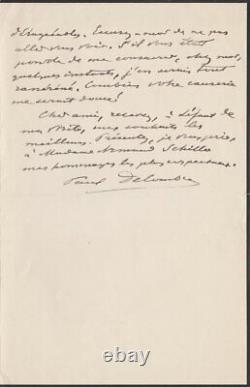 d'Engadine. Excusez-moi de ne pas
aller vous voir. S'il vous était
possible de me consacrer, chez moi,
quelques instants, j'en serais tout
Combien votre causerie
me serait douce!
Cher ami, recevez, à défaut de
ma visite, mes souhaits les
meilleurs. Présentez, je vous prie,
à Madame Armand Schiller
mes hommages les plus respectueux.
Paul Delombre